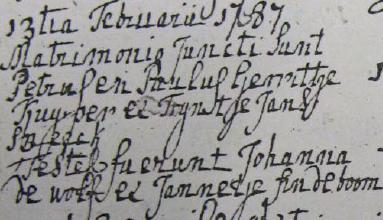 13tia Februarii 1787
Matrimonio Juncti Sunt
Petrus en Paulus Gerritse
Kuyper et Tryntje Jans
Testes fuerunt Johanna
de wolf et Jannetje findeboom